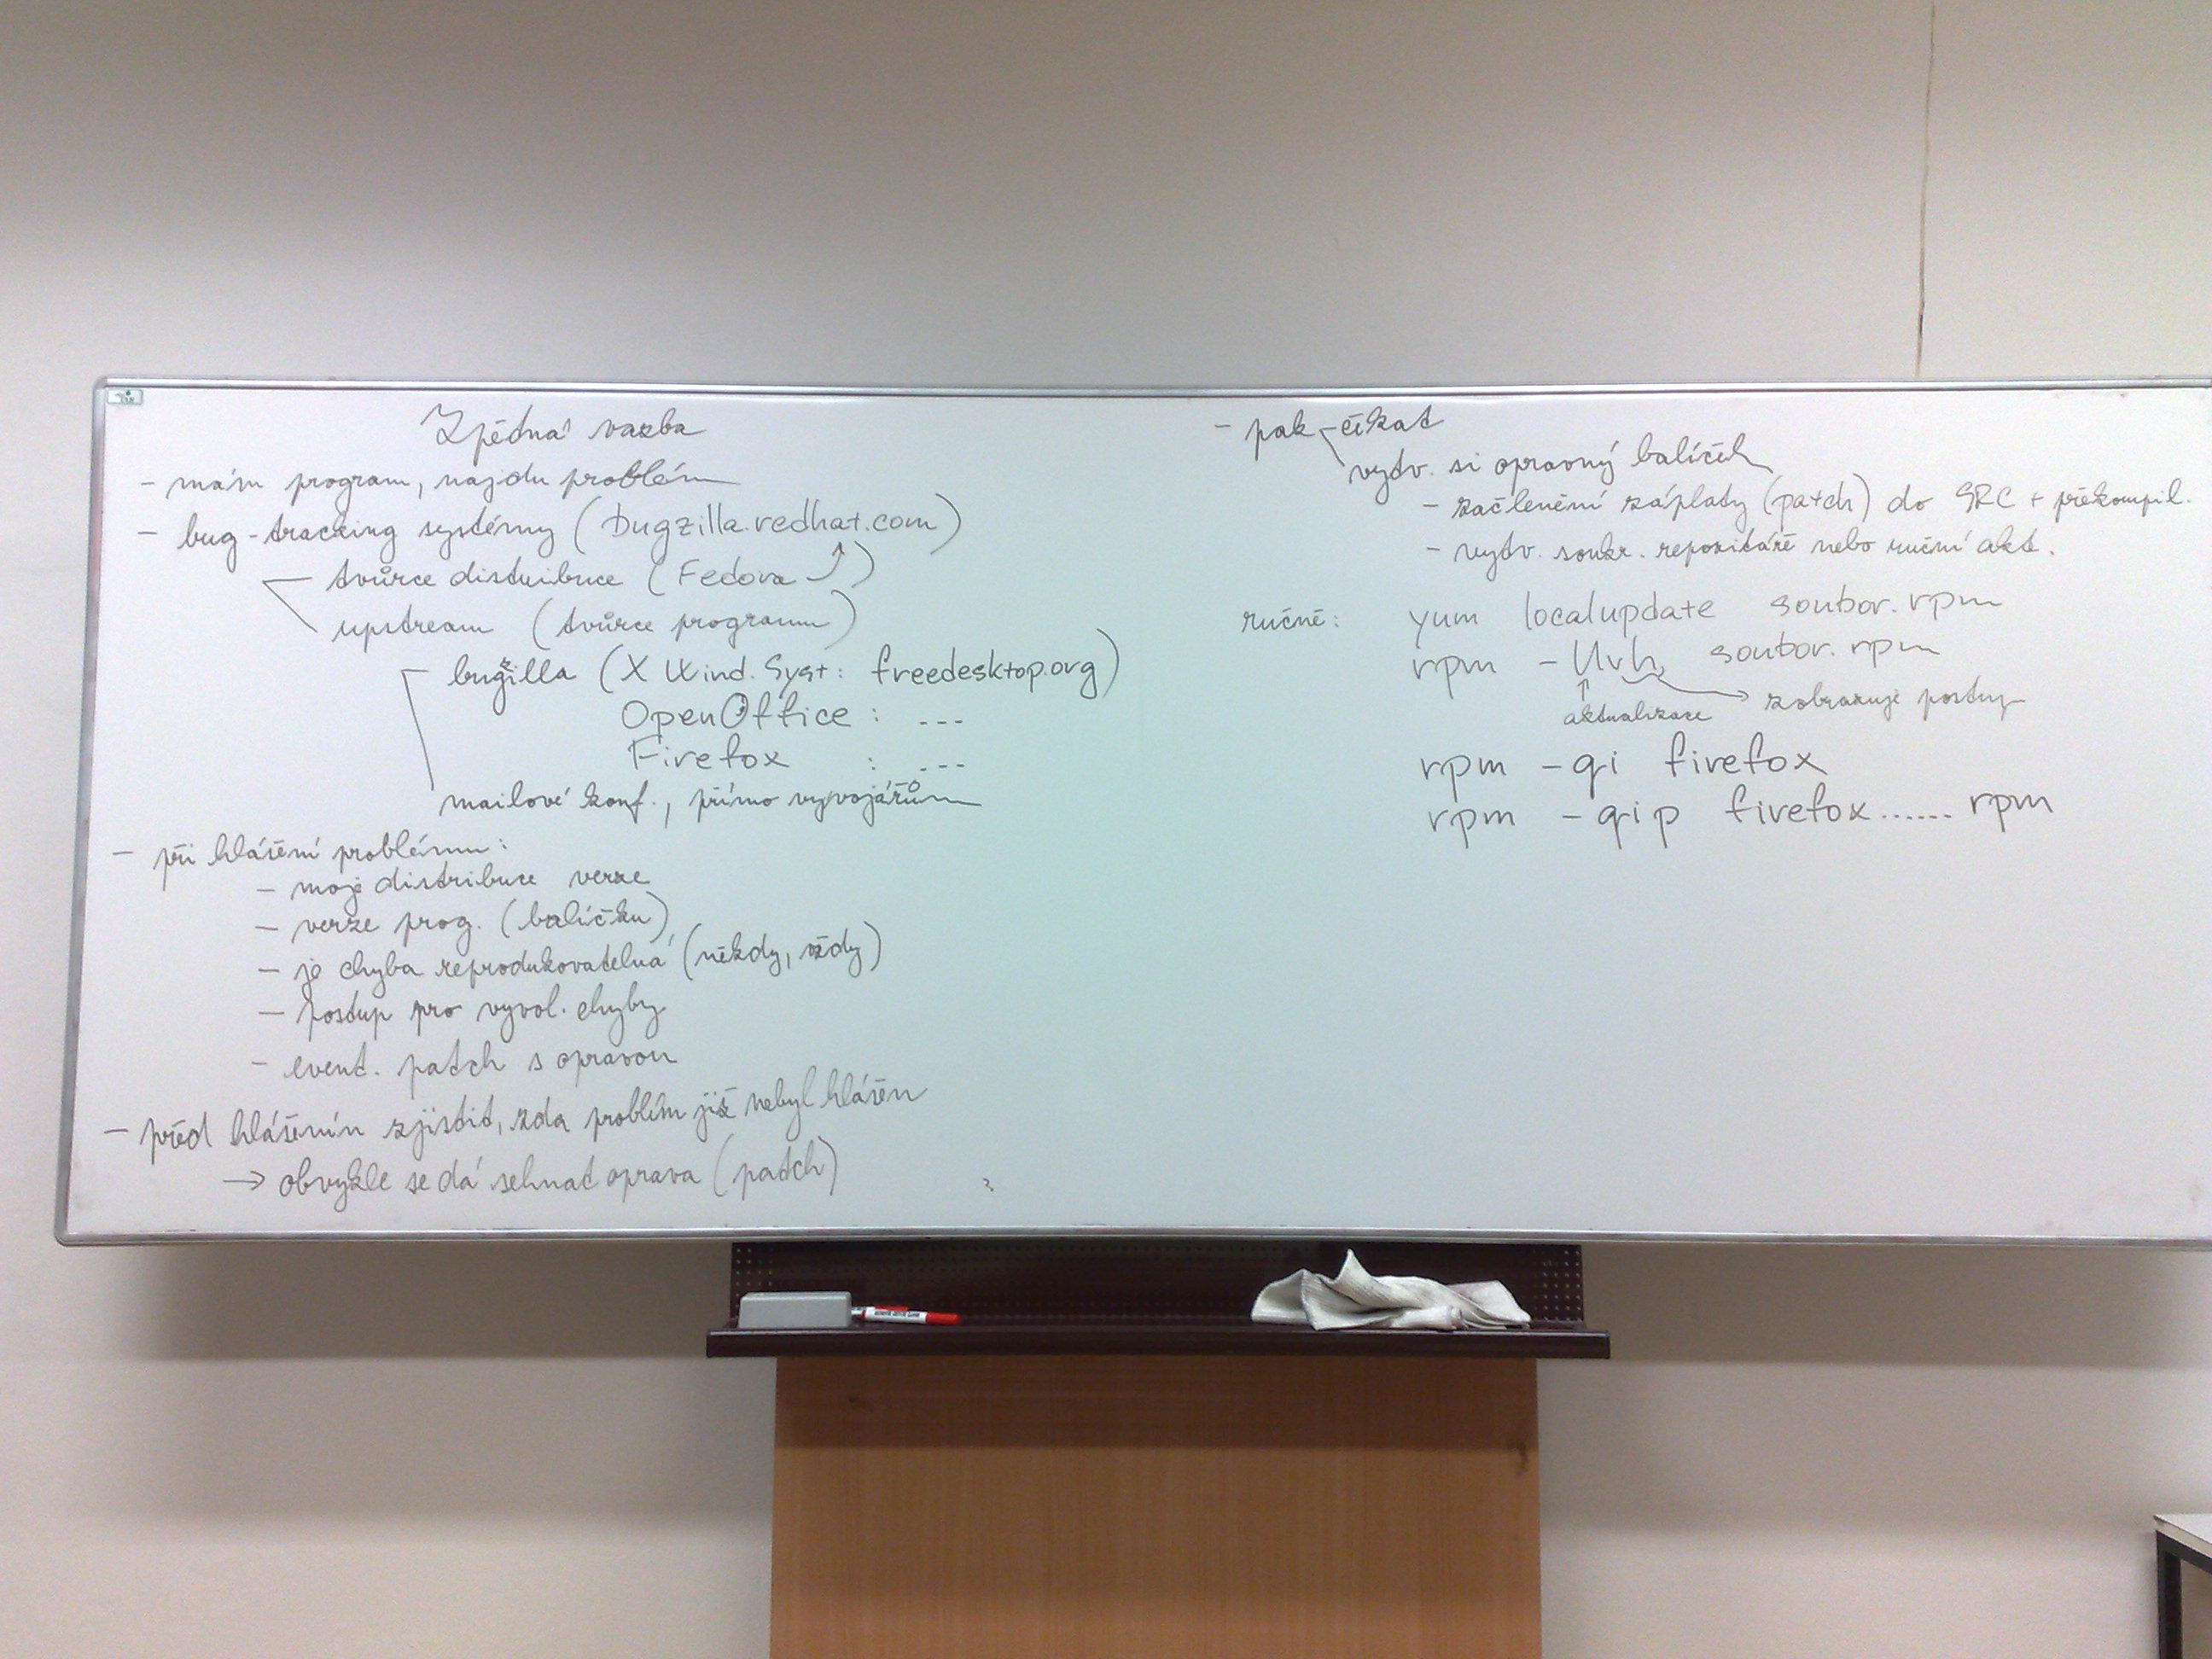 Zpětná vazba
- mám program, najdu problém
- bug-tracking systémy (bugzilla.redhat.com)
- tvůrce distribuce (Fedora ↑)
upstream (tvůrce programu)
bugzilla (X Wind. Syst: freedesktop.org)
OpenOffice : ---
Firefox : ---
mailové konf., přímo vývojářům
- při hlášení problému:
- moje distribuce verze
- verze prog. (balíčku)
- je chyba reprodukovatelná (někdy, vždy)
- postup pro vyvol. chyby
- event. patch s opravou
- před hlášením zjistit, zda problém již nebyl hlášen
→ obvykle se dá sehnat oprava (patch)
- pak - čekat
vytv. si opravný balíček
- začlenění záplaty (patch) do SRC + překompil.
- vytv. soukr. repozitáře nebo ruční akt.
ručně: yum localupdate soubor.rpm
rpm -Uvh soubor.rpm
aktualizace → zobrazuje postup
rpm -qi firefox
rpm -qip firefox...... rpm